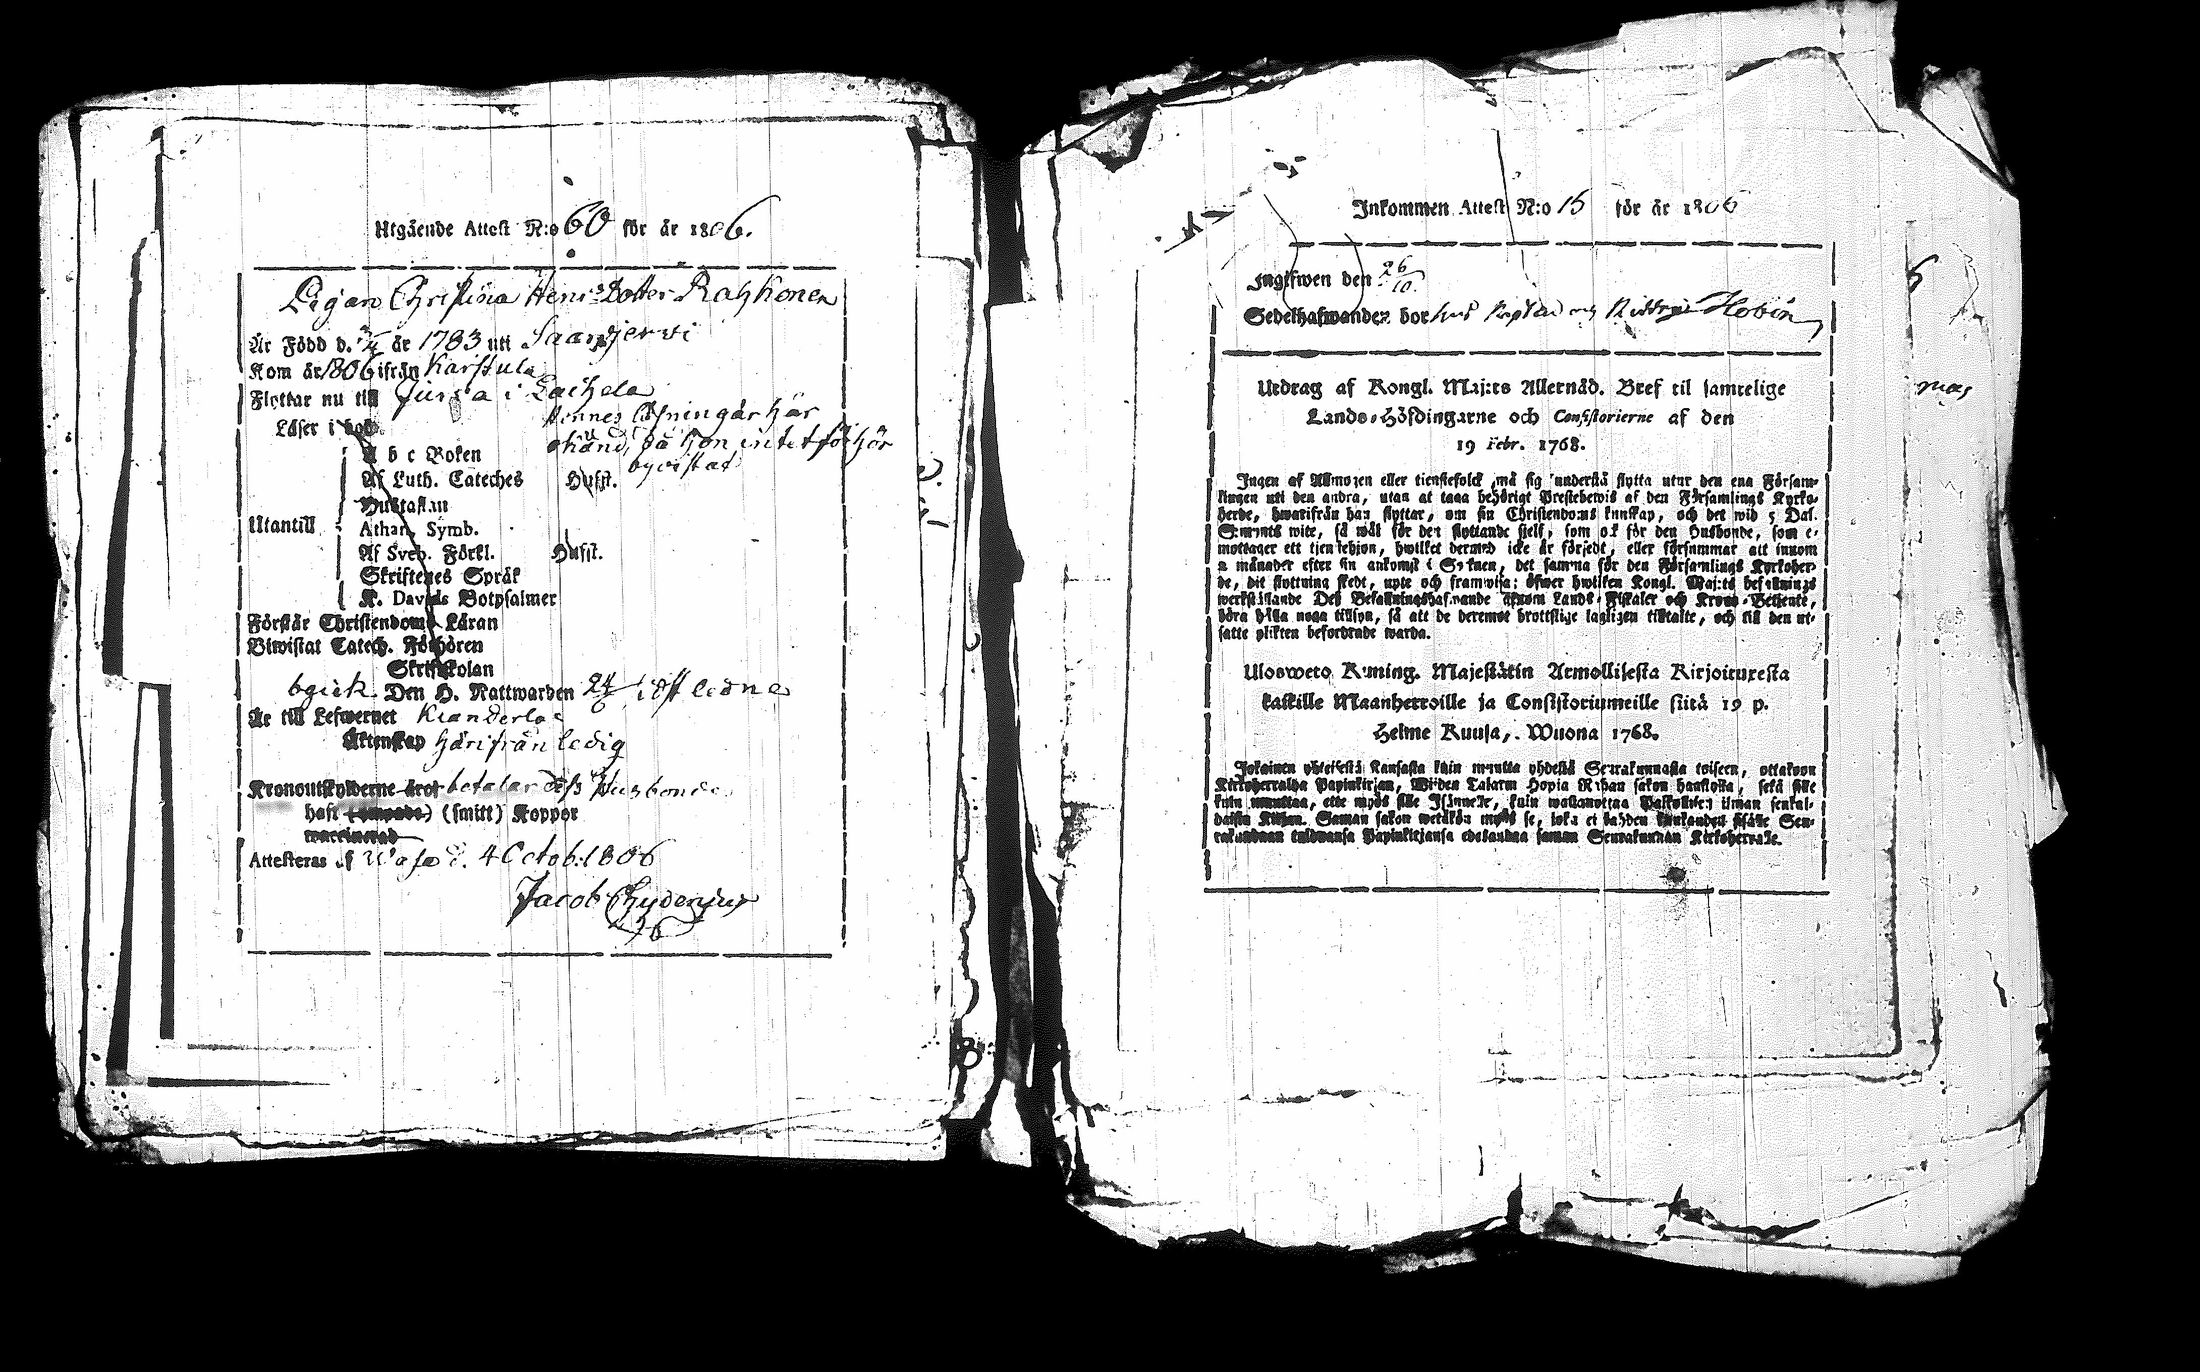 Utgående Attest N:o 60 för år 1806.
Pigan Christina Henr:s Dotter Rahkonen
Är Född d. år 1783 uti Saarijerwi
Kom år 1806 ifrån Karstula
Flyttar nu till Jussa i Laihela
Läser i bok
Hennes läsning är här
okänd, då hon intet förhör
bewistat
A b c Boken
Af Luth. Cateches Husst.
Hustaflan
Utantill
Athan. Symb.
Af Sveb. Förkl. Husst.
Skriftenes Språk
K. Davids Botpsalmer
Förstår Christendoms Läran
Biwistat Catech. Förhören
Skriftskolan
begick Den H. Nattwarden 24/6
Är till Lefwernet klanderlös
Äktenskap härifrån ledig
Kronoutskylderne äro betalar dess Husbonde
haft (smitt) Koppor
vaccinerad
Attesteras af Wasa d. 4 Octob. 1806
Jacob Chydenius
Inkommen Attest N:o 15 för år 1806
Ingifwen den 26/10.
Sedelhafwanden bor hos och Hobin
Utdrag af Kongl. Maj:ts Allernåd. Bref til samtelige
Lands-Höfdingarne och Consistorierne af den
19 Febr. 1768.
Ingen af Allmogen eller tienstefolck må sig understå flytta utur den ena Försam-
lingen uti den andra, utan at taga behörigt Prestebewis af den Församlings Kyrko-
herde, hwarifrån han flyttar, om sin Christendoms kunskap, och det wid 5 Dal.
S:mynts wite, så wäl för den flyttande sielf, som ock för den Husbonde, som e-
mottager ett tjenstehjon, hwilket dermed icke är försedt, eller försummar att innom
2 månader efter sin ankomst i Soknen, det samma för den Församlings Kyrkoher-
de, dit flyttning skedt, upte och framwisa; öfwer hwilken Kongl. Maj:ts befallnings
werkställande Des Befallningshafwande genom Lands-Fiskaler och Krono-Betjente,
böra hålla noga tillsyn, så att de deremot brottslige lagligen tilltalte, och till den ut-
satte plikten befordrade warda.
Ulosweto Kuning. Majestätin Armollisesta Kirjoituxesta
kaikille Maanherroille ja Consistoriumeille siitä 19 p.
Helme Kuusa,. Wuona 1768.
Jokainen yhteisestä Kansasta kuin muutta yhdestä Seurakunnasta toiseen, ottakoon
Kirkoherralda Papinkirjan, Wiiden Talarin Hopia Rahan sakon haastolla, sekä sille
kuin muuttaa, ette myös sille Isännelle, kuin wastanottaa Palkollisen ilman senkal-
daista Kirjan. Saman sakon wetäkön myös se, joka et kahden Kuukauden sisälle Seu-
rakundaan tuldwansa Papinkirjansa edesanna saman Seurakunnan Kirkoherralle.